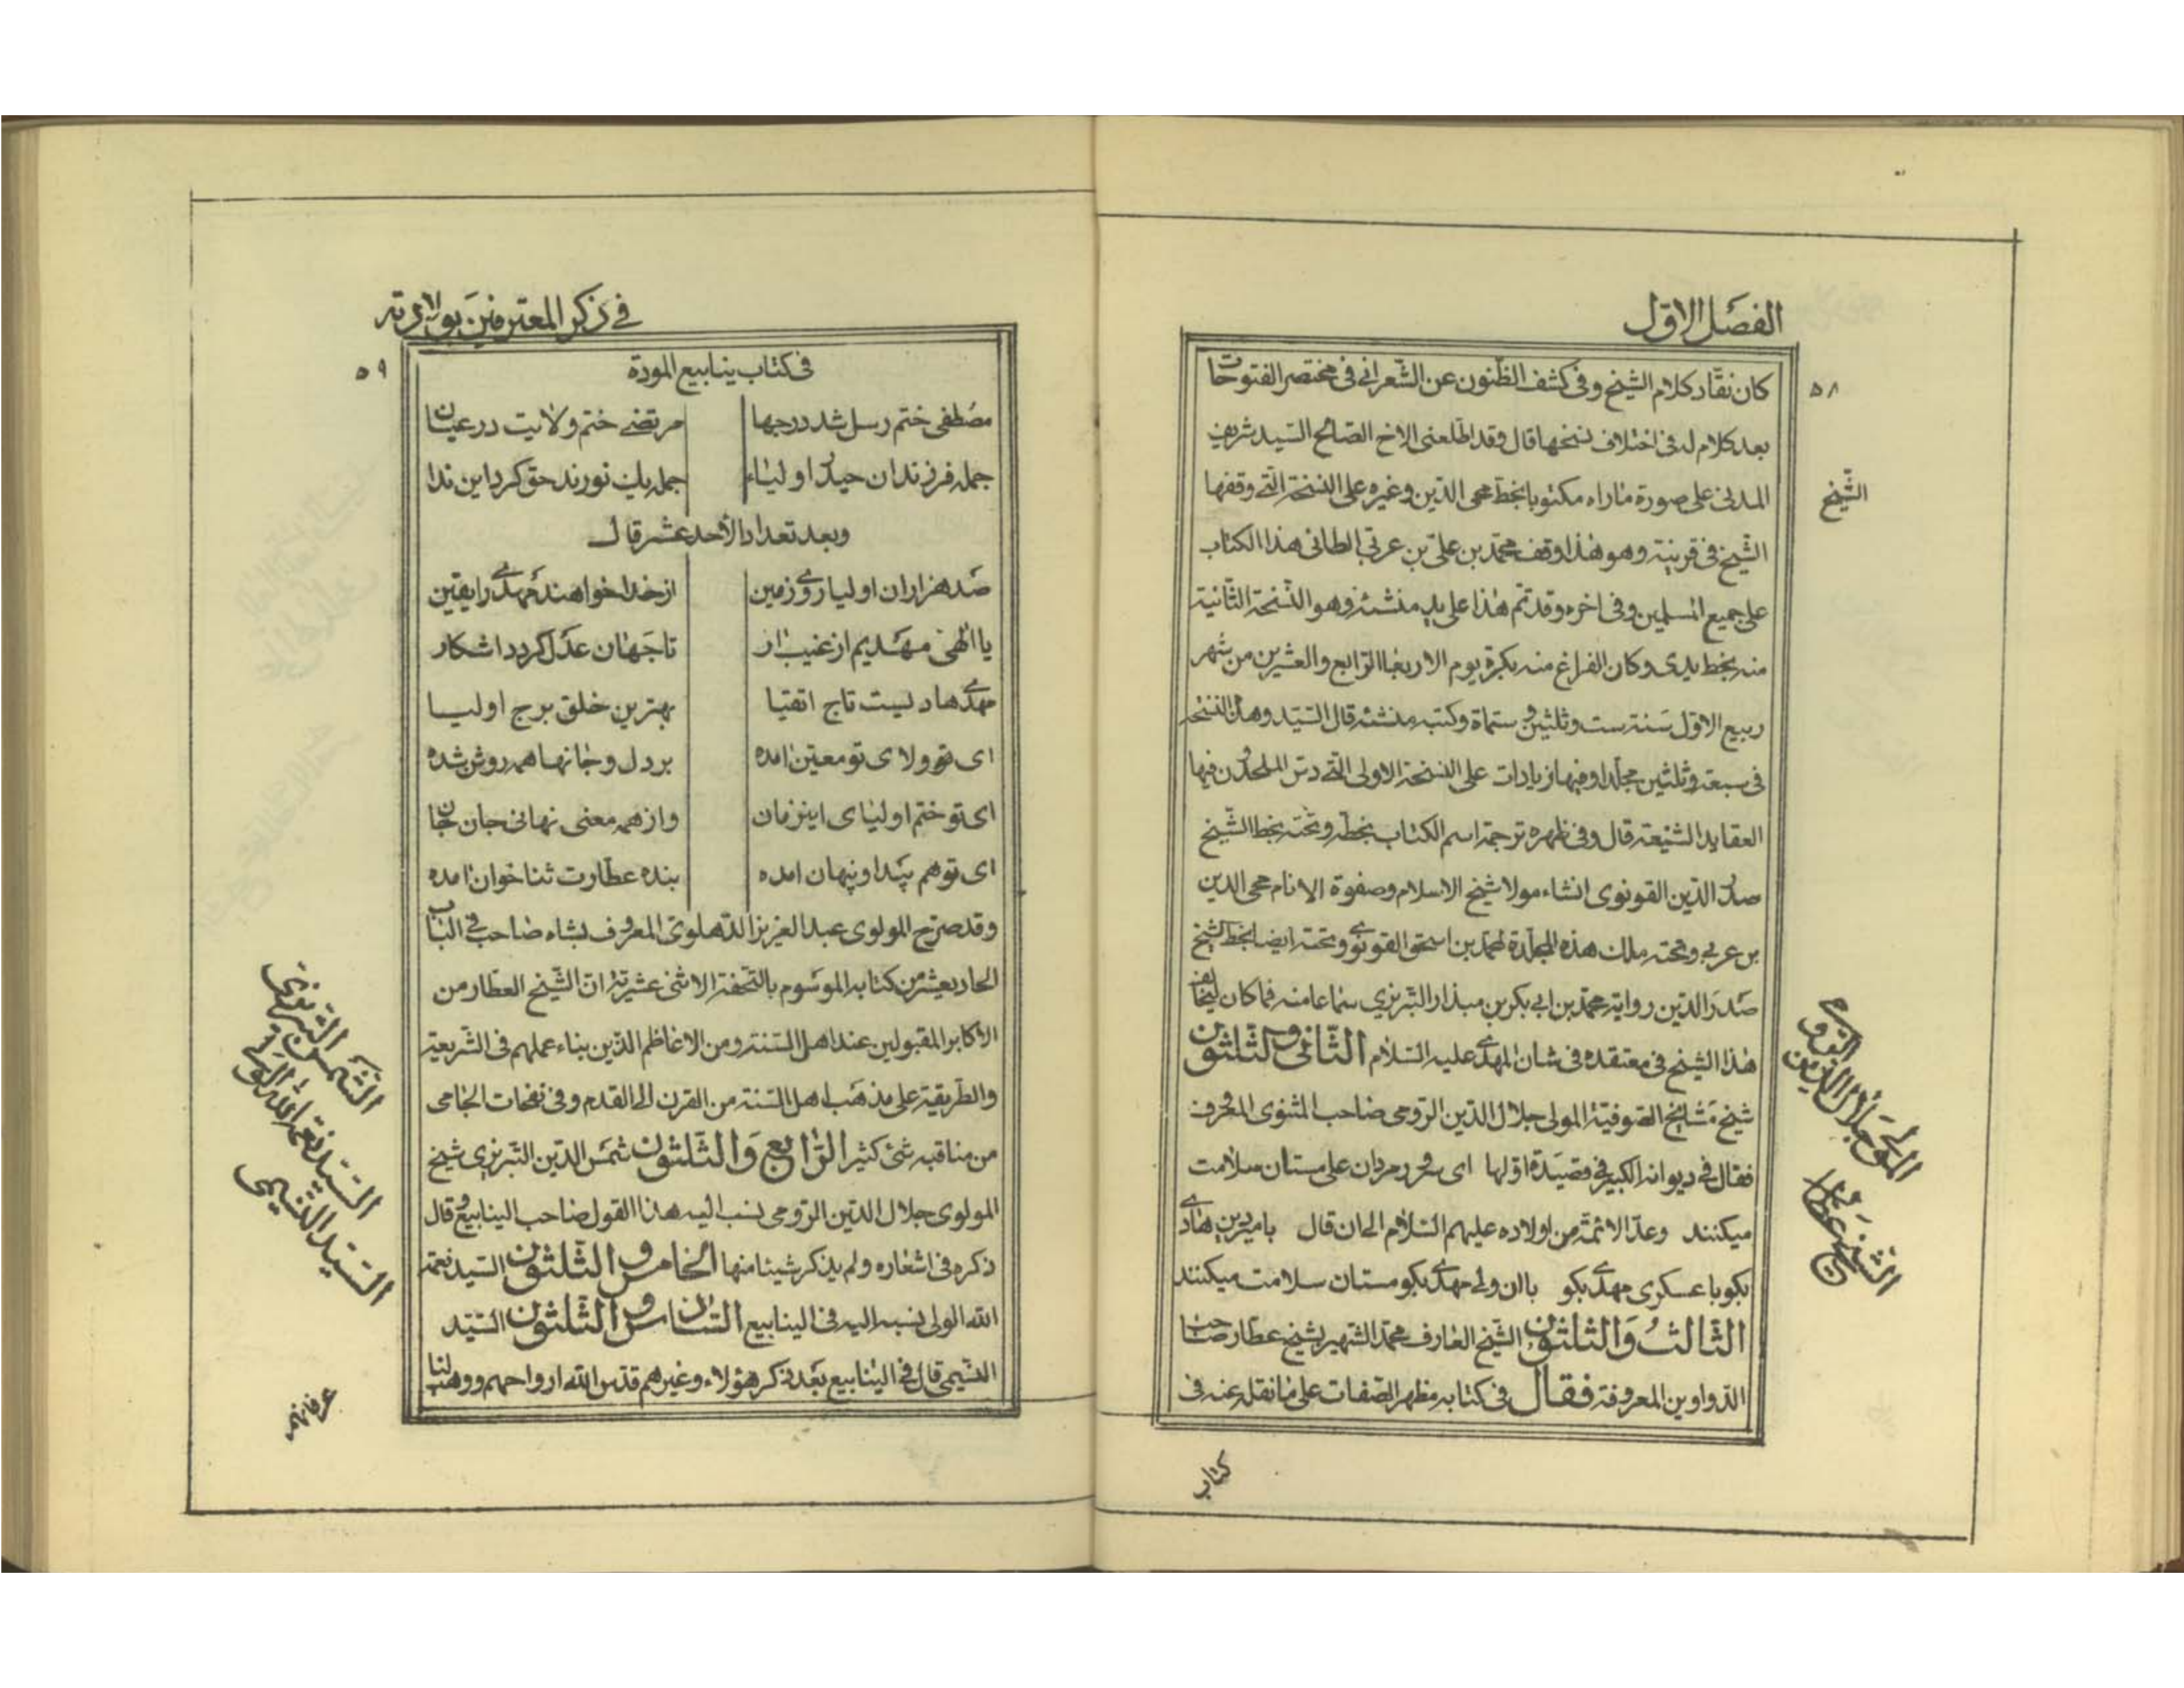 الفصل الاول
٥٨
كان نقّاد كلام الشيخ وفى كشف الظّنون عن الشّعرانى فى مختصر الفتوحات
بعد كلام له فى اختلاف نسخها قال وقد اطلعنى الاخ الصّالح السّيد شريف
المدنى على صورة ماراه مكتوبا بخط محى الدّين وغيره على النسخة الّتى وقفها
الشّيخ
الشّيخ فى قرينته وهو هذا وقف محمّد بن علىّ بن عربى الطائى هذا الكتاب
على جميع المسلمين وفى اخره وقد تم هذا على يد منشئه وهو النّسخة الثّانية
منه بخط يدى وكان الفراغ منه بكرة يوم الاربعا الرّابع والعشرين من شهر
ربيع الاوّل سنة ست وثلثين وستماة وكتب منشئه قال السّيد وهذه النسخة
فى سبعة وثلثين مجلدا وفيها زيادات على النسخة الاولى الّتى دسّ الملحدون فيها
العقايد الشنيعة قال وفى ظهره ترجمة اسم الكتاب بخطّه وتحته بخط الشّيخ
صدر الدّين القونوى انشاء مولا شيخ الاسلام وصفوة الانام محى الدين
بن عربي وتحته ملك هذه المجلدة لمحمّد بن اسحق القونوى وتحته ايضا بخط الشيخ
صدر الدّين رواية محمّد بن ابى بكر بن مبذار التبريزى سماعا منه فما كان ليخالف
هذا الشيخ فى معتقده فى شان المهدى عليه السّلام الثّانى والثّلثون
المولى جلال الدّين الرومى
شيخ مشايخ الصّوفيّة المولى جلال الدّين الرّومى صاحب المثنوى المعروف
فقال فى ديوانه الكبير فى قصيدة اوّلها اى سرور مردان على مستان سلامت
الشّيخ عطّار
ميكنند وعدّ الائمّة من اولاده عليهم السّلام الى ان قال با مير دين هادى
بكو با عسكرى مهدى بكو با ان ولى مهدى بكو مستان سلامت ميكنند
الثّالث والثّلثون الشّيخ العارف محمّد الشّهير بشيخ عطار صاحب
الدّواوين المعروفة فقال فى كتابه مظهر الصّفات على ما نقله عنه فى
كتاب
فى ذكر المعترفين بولادته
٥٩
فى كتاب ينابيع المودة
مصطفى ختم رسل شد در جها مرتضى ختم ولايت در عيان
جمله فرزندان حيدر اولياء جمله يك نورند حق كرد اين ندا
وبعد تعداد الأحد عشر قال
صد هزاران اوليا روى زمين از خدا خواهند مهدى را يقين
يا الهى مهديم از غيب ار تا جهان عدل كردد اشكار
مهدى هاديست تاج اتقيا بهترين خلق برج اوليا
اى تو ولاى تو معين امده بر دل و جانها همه روشن شده
اى تو ختم اولياى اين زمان واز همه معنى نهانى جان جان
اى تو هم پيدا و پنهان امده بنده عطارت ثنا خوان امده
وقد صرّح المولوى عبد العزيز الدّهلوى المعروف بشاه صاحب فى الباب
الحاديعشر من كتابه الموسوم بالتّحفة الاثنى عشريّة انّ الشّيخ العطار من
الأكابر المقبولين عند اهل السّنة ومن الاعاظم الّذين بناء عملهم فى الشّريعة
والطّريقة على مذهب اهل السّنة من القرن الى القدم وفى نفحات الجامى
من مناقبه شئ كثير الرّابع والثّلثون شمس الدّين التّبريزى شيخ
الشّمس التّبريزى
المولوى جلال الدّين الرّومى نسب اليه هذا القول صاحب الينابيع وقال
ذكره فى اشعاره ولم يذكر شيئا منها الخامس والثّلثون السّيد نعمة
السّيد نعمة الله الولى
الله الولى نسبه اليه فى الينابيع السّادس والثّلثون السّيّد
السّيد النّسيمى
النّسيمى قال فى الينابيع بعد ذكر هؤلاء وغيرهم قدّس الله ارواحهم ووهب لنا
عرفانهم